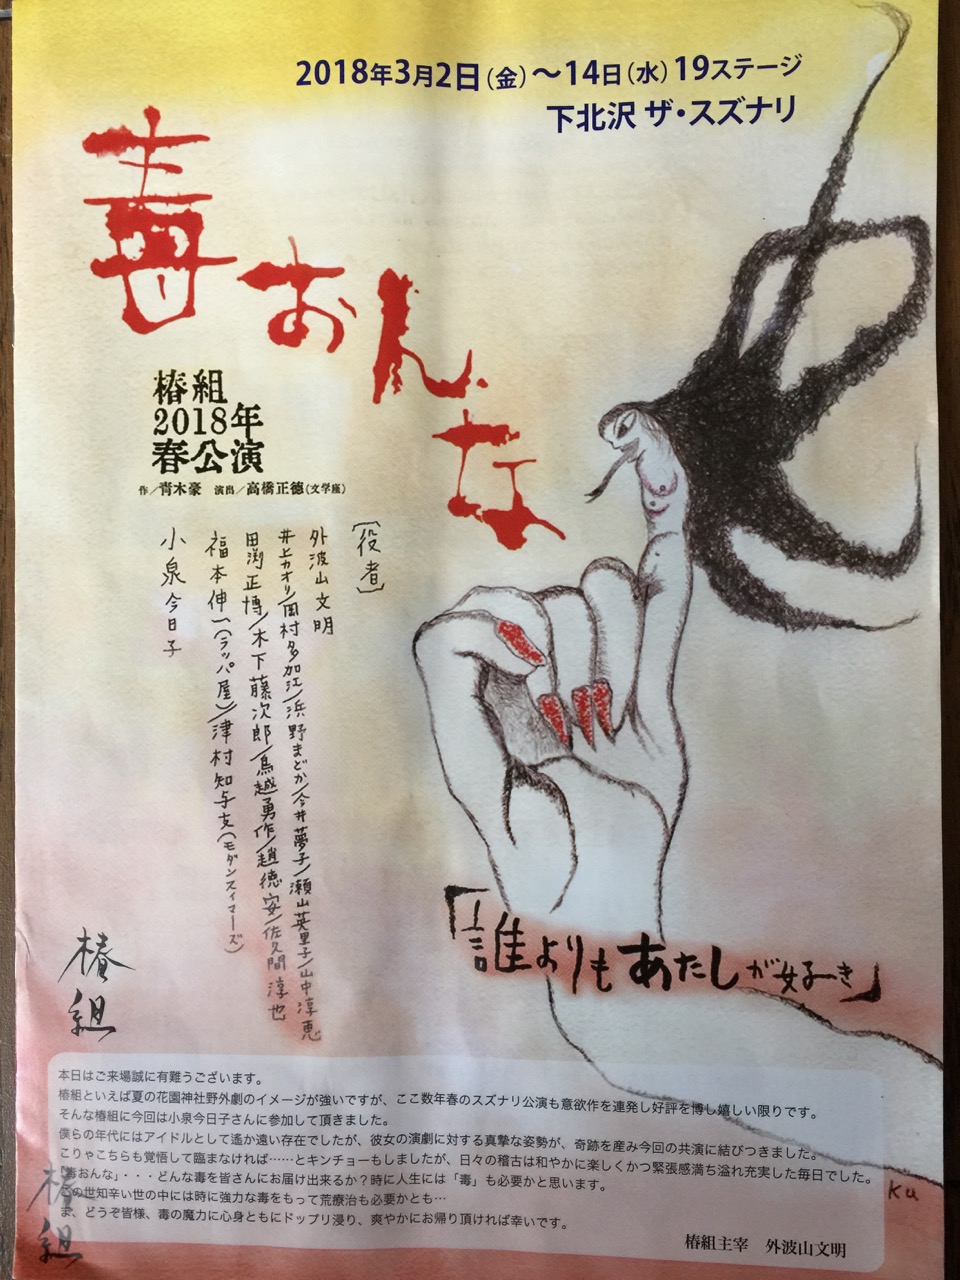 2018年3月2日(金)～14日(水)19ステージ
下北沢 ザ・スズナリ
毒おんな
椿組
2018年
春公演
作／青木豪　演出／高橋正徳(文学座)
[役者]
外波山文明
井上カオリ／岡村多加江／浜野まどか／今井夢子／瀬山英里子／山中淳恵
田渕正博／木下藤次郎／鳥越勇作／趙徳安／佐久間淳也
福本伸一(ラッパ屋)／津村知与支(モダンスイマーズ)
小泉今日子
「誰よりもあたしが好き」
椿組
本日はご来場誠に有難うございます。
椿組といえば夏の花園神社野外劇のイメージが強いですが、ここ数年春のスズナリ公演も意欲作を連発し好評を博し嬉しい限りです。
そんな椿組に今回は小泉今日子さんに参加して頂きました。
僕らの年代にはアイドルとして遙か遠い存在でしたが、彼女の演劇に対する真摯な姿勢が、奇跡を産み今回の共演に結びつきました。
こりゃこちらも覚悟して臨まなければ……とキンチョーもしましたが、日々の稽古は和やかに楽しくかつ緊張感満ち溢れ充実した毎日でした。
「毒おんな」・・・どんな毒を皆さんにお届け出来るか？時に人生には「毒」も必要かと思います。
この世知辛い世の中には時に強力な毒をもって荒療治も必要かとも…
ま、どうぞ皆様、毒の魔力に心身ともにドップリ浸り、爽やかにお帰り頂ければ幸いです。
椿組主宰　外波山文明
椿組
Ku